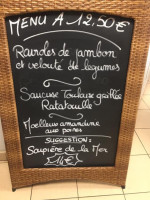 MENU A 12,50€
Roulades de jambon
et velouté de légumes
Saucisse Toulouse grillée
Ratatouille
Moelleux amandine
aux poires
SUGGESTION:
Soupière de la Mer
14€